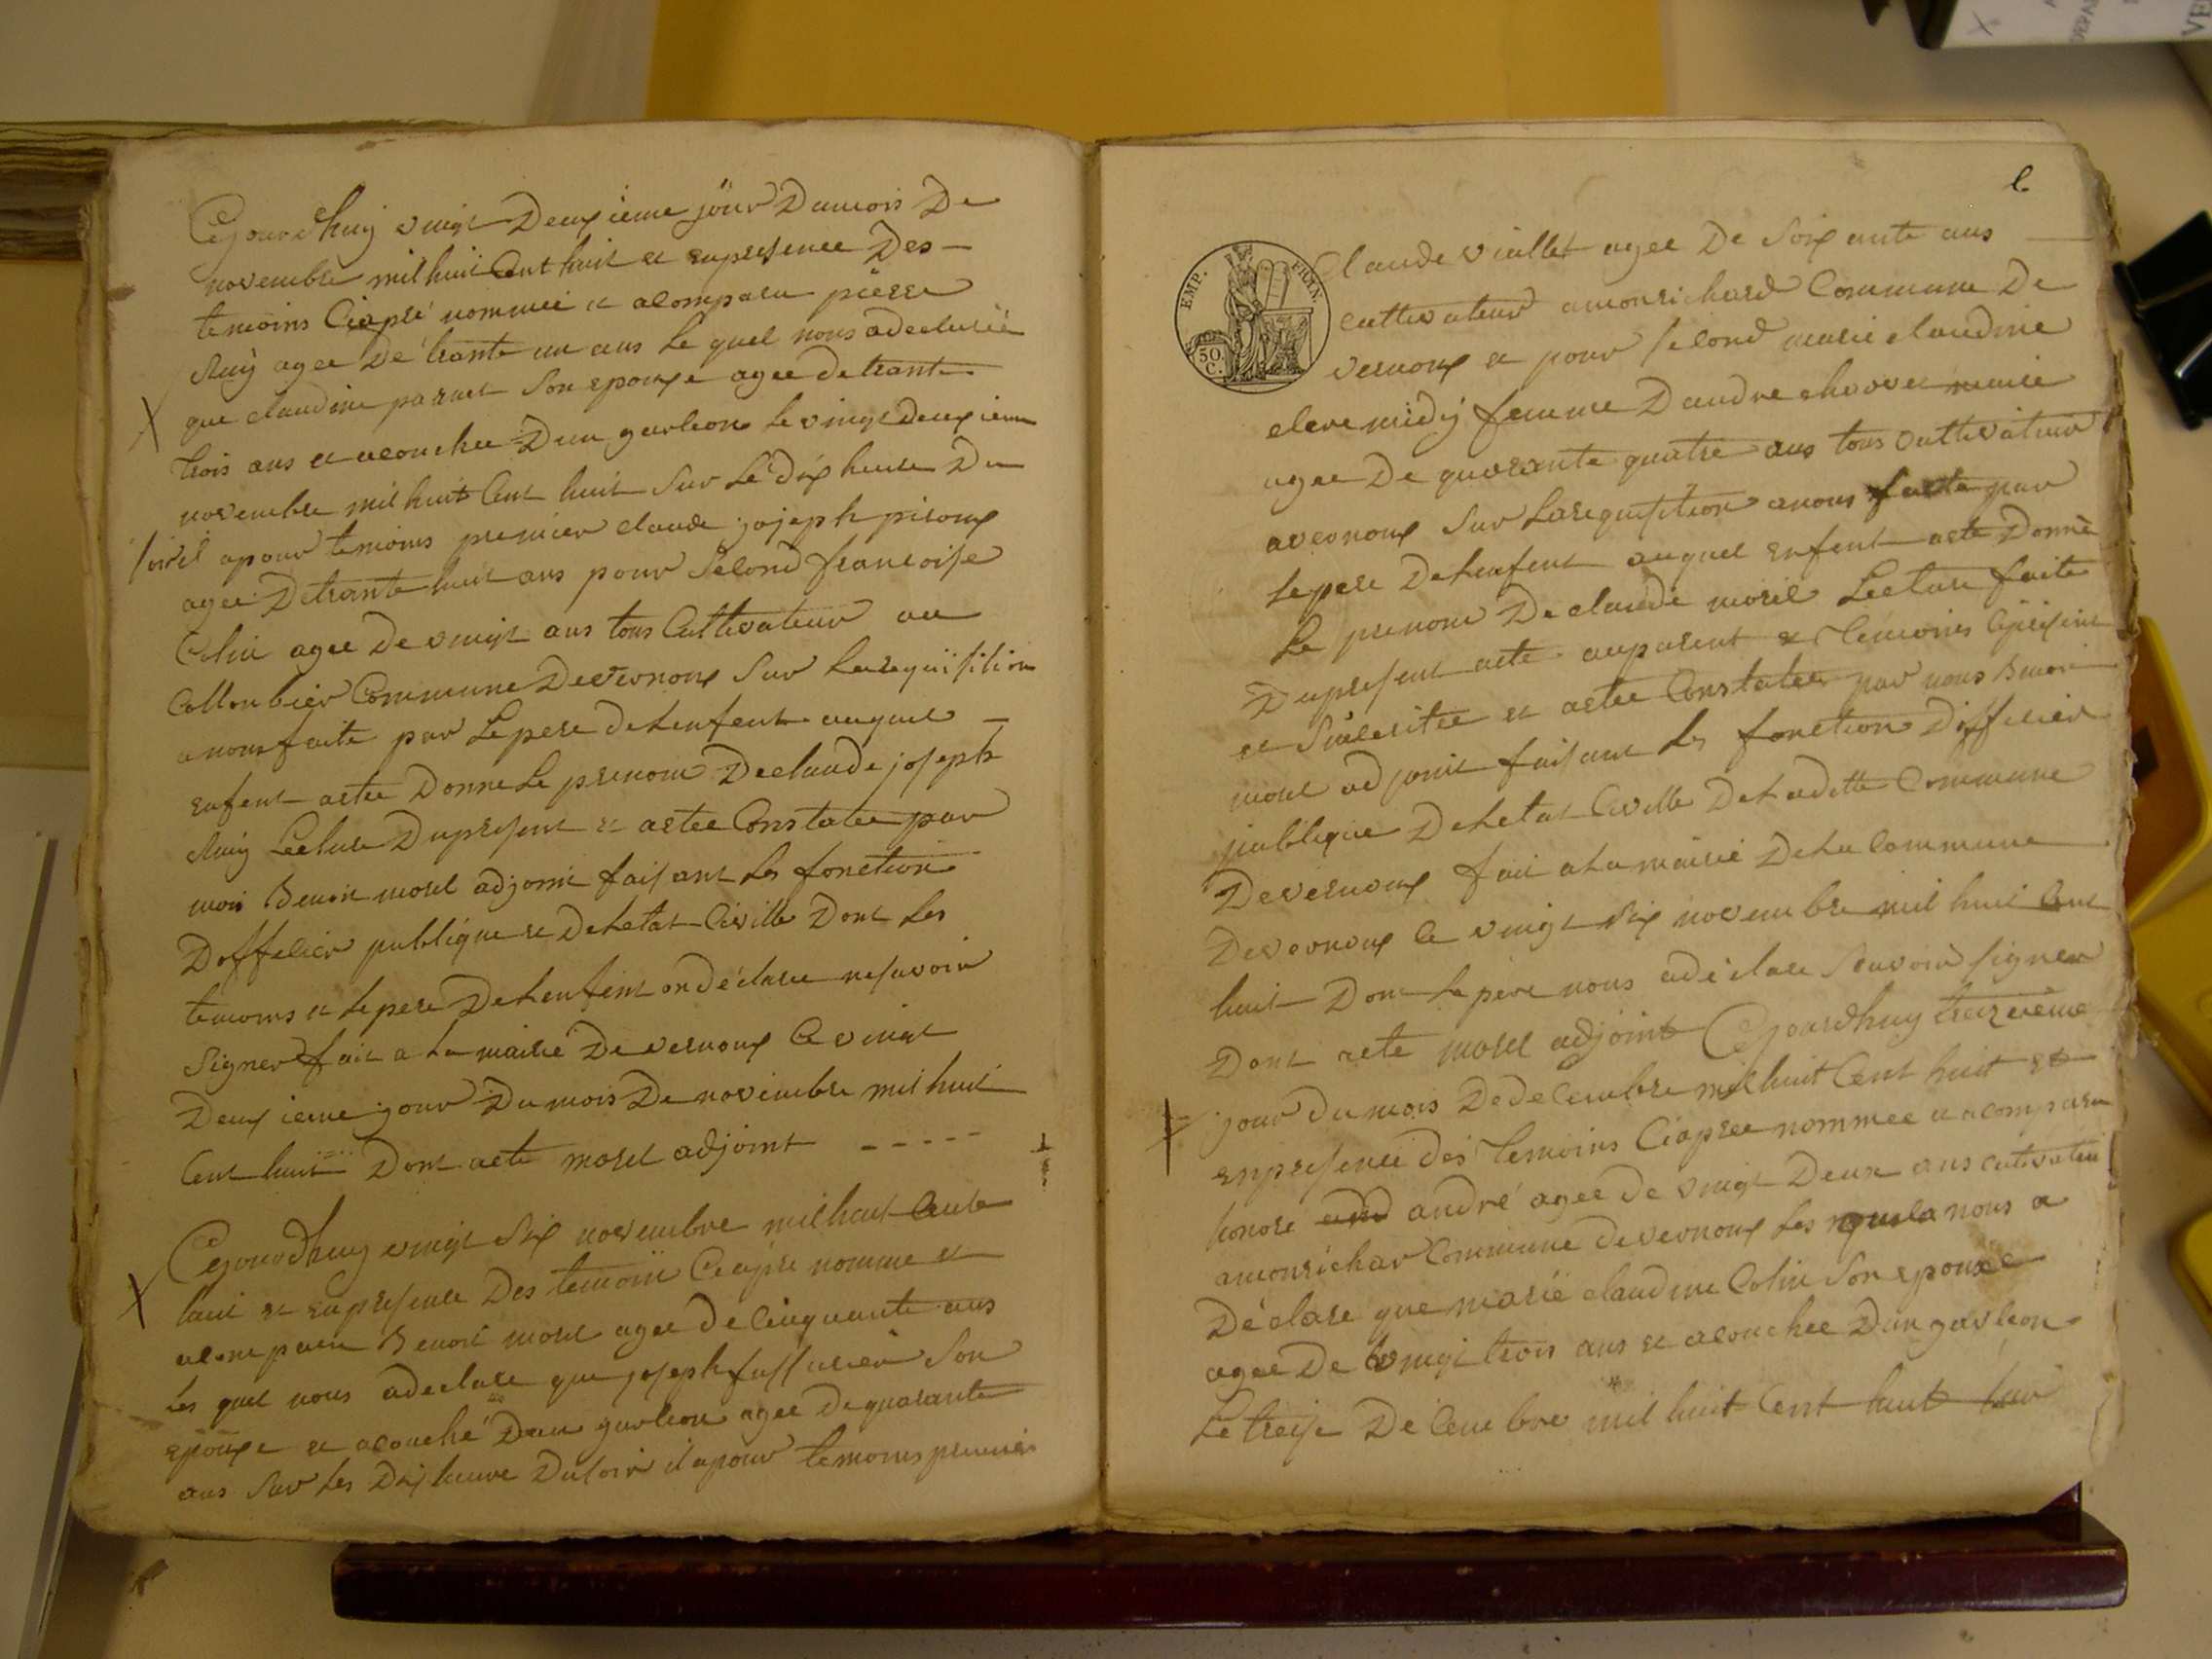 Cejourdhuy vingt Deuxieme jour Dumois De
novembre mil huit Cent huit et enpresence Des
temoins Ciapré nommée et acomparu pierre
agee De trante un ans Le quel nous adeclaréé
que claudine parnet Son epouxe agee detrante
trois ans et acouchee Dun garcon Le vingt deuxieme
novembre mil huit Cent huit Sur Le dix heure Du
soir il apour temoins premier claude jojeph piroux
agee Detrante huit ans pour Second francoise
Colin agee De vingt ans tous Cultivateur au
Collonbier Commune Devernoux Sur Larequisition
anous faite par Lepere deLenfent auquel
enfent aetee Donne Le prenom Declaude joseph
Lecture Dupresent et aetee Constatee par
moi Benoit morel adjoint faisant Les fonction
Doffecier publique et DeLetat Civille Dont Les
temoins et Lepere DeLenfent on déclaré nesavoir
Signer fait a La mairie De vernoux Ce vingt
Deuxieme jour Du mois De novembre mil huit
Cent huit Dont acte morel adjoint - - - - -
Cejourdhuy vingt Six novembre mil huit Cent
huit et enpresence Des temoin Ceapre nomme et
acomparu Benoit morel agee De Cinquante ans
Les quel nous adeclare que joseph Son
epouxe et acouché Dun garcon agee De quarante
ans Sur Les Dix heure Dusoir il apour temoins premier
EMP. FRAN.
50.
C.
Claude viallet agee De Soixante ans
cultivateur amonrichard Commune De
vernoux et pour Second marie claudine
clere midy femme Dandre
agee De quarante quatre ans tous Cultivateur
avernoux Sur Larequisition anous faite par
Lepere DeLenfent auquel enfent aete Donné
Le prenom De claude morel Lecture faite
Dupresent acte auparent et temoins
et aetee Constatee par nous Benoi
morel adjoint faisant Les fonction Diffecier
publique DeLetat Civille DeLadette Commune
Devernoux fait a La mairie DeLa Commune
Devernoux Ce vingt Six novembre mil huit Cent
huit Dont Le pere nous adeclare Scavoir signer
Dont acte morel adjoint Cejourdhuy treizieme
jour Du mois Dedecembre mil huit Cent huit et
enpresence des temoins Ciapree nommee et acomparu
honoré and andré agee de vingt Deux ans cultivateu
amonrichar Commune devernoux Les quela nous a
Déclare que marie claudine Colin Son epouxe
agee De vingt trois ans et acouchee Dun garcon
Le treise Decembre mil huit Cent huit Sur